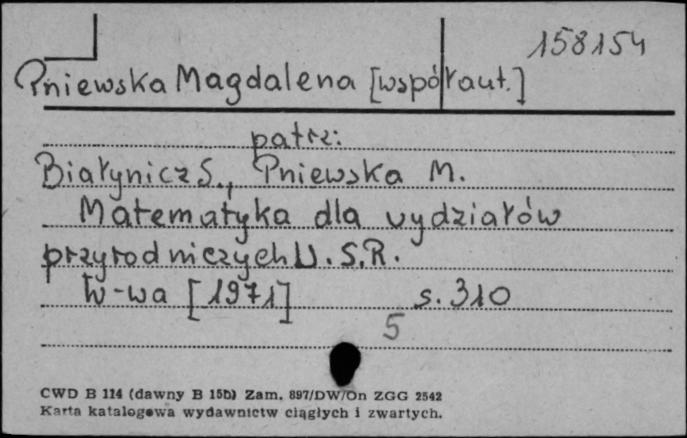 158154
Pniewska Magdalena [współaut.]
patrz:
Białynicz S., Pniewska M.
Matematyka dla wydziałów
przyrodniczych U.S.R.
W-wa [1971] s. 310
5
CWD B 114 (dawny B 15b) Zam. 897/DW/On ZGG 2542
Karta katalogowa wydawnictw ciągłych i zwartych.